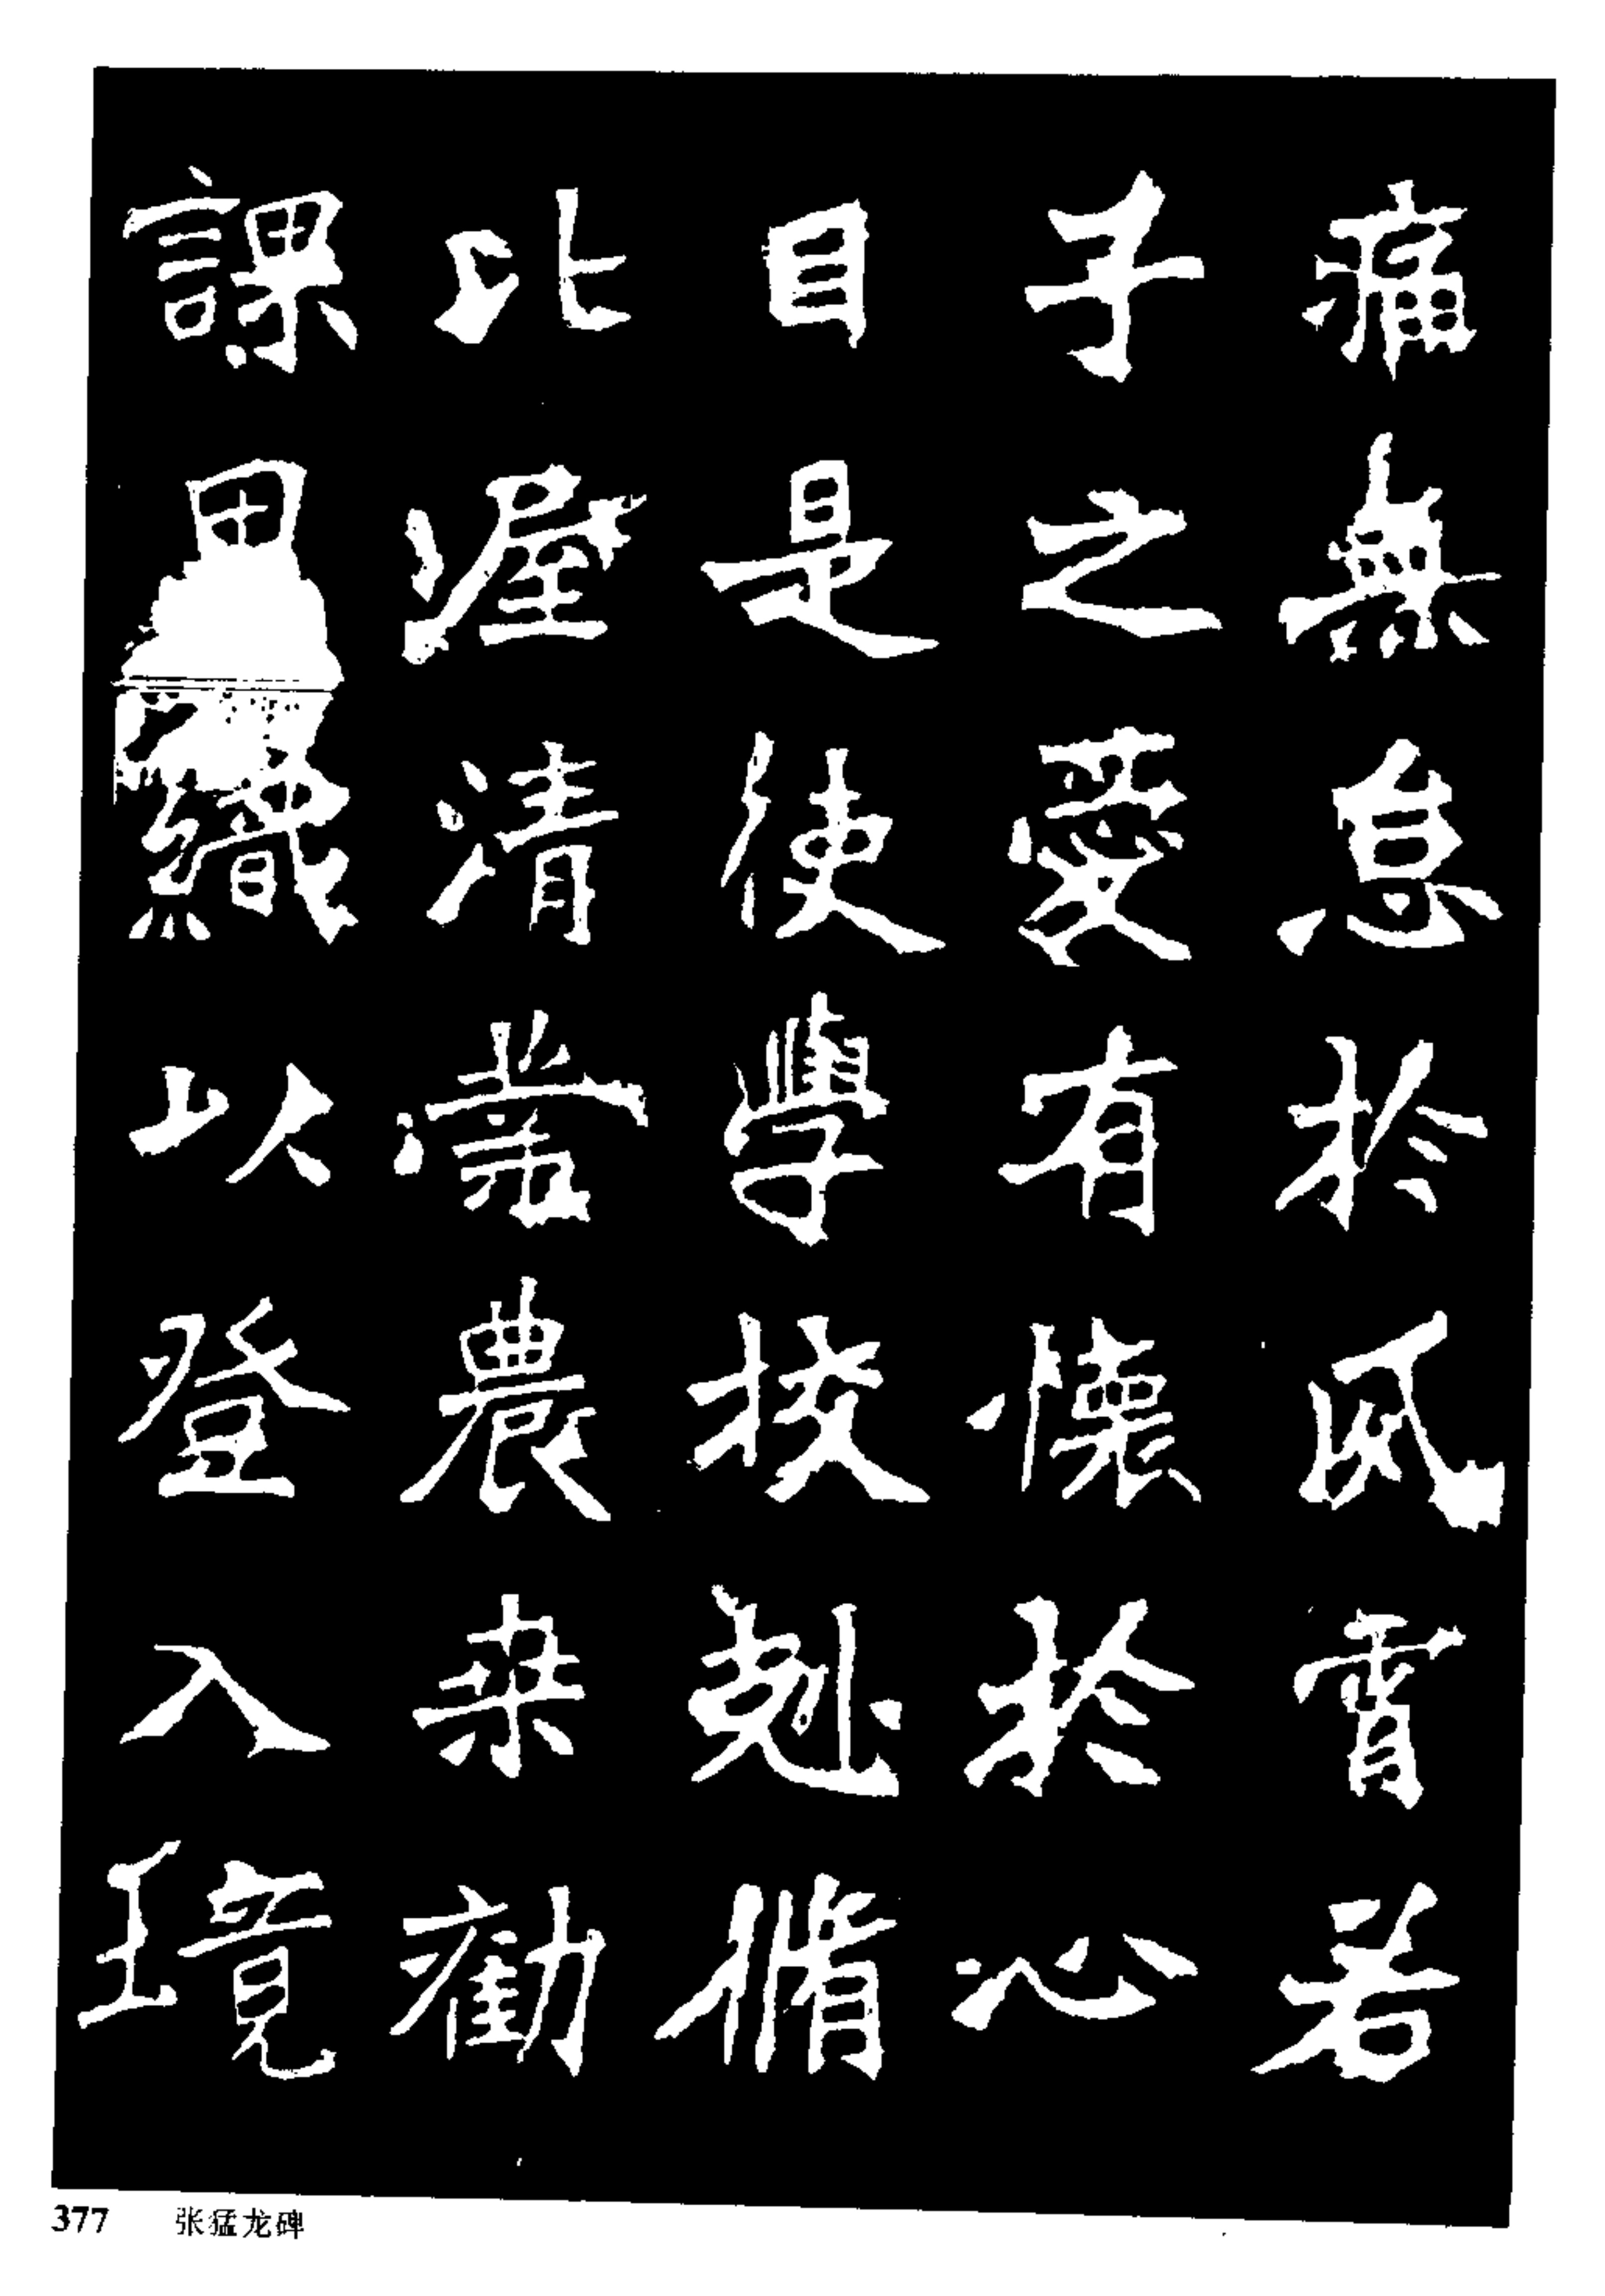 痛無怠於夙霄若
子之愛有懷於心
目是使學挍尅脩
比渥清農桒勸
課田織以登入境
377 张猛龙碑